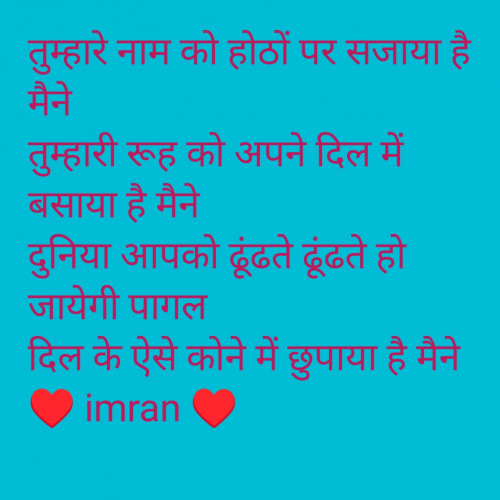 तुम्हारे नाम को होठों पर सजाया है
मैने
तुम्हारी रूह को अपने दिल में
बसाया है मैने
दुनिया आपको ढूंढते ढूंढते हो
जायेगी पागल
दिल के ऐसे कोने में छुपाया है मैने
♥ imran ♥